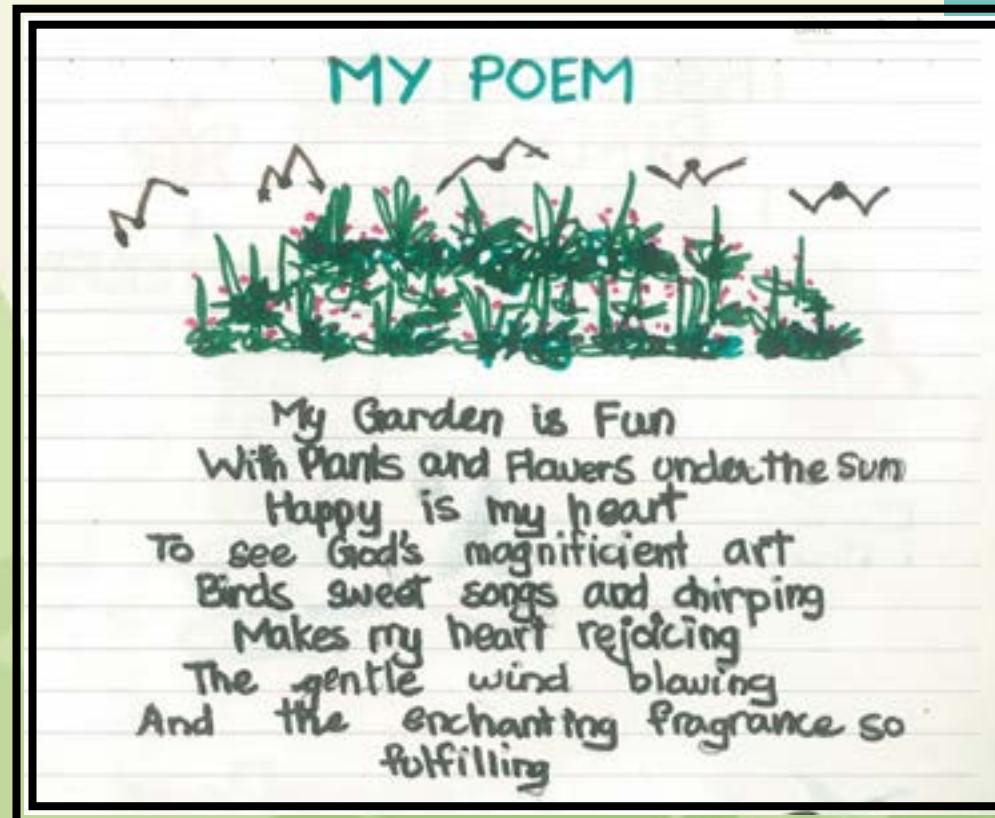 DATE
MY POEM
My Garden is Fun
With Plants and Flowers under the Sun
Happy is my heart
To see God's magnificient art
Birds sweet songs and chirping
Makes my heart rejoicing
The gentle wind blowing
And the enchanting fragrance so
fulfilling